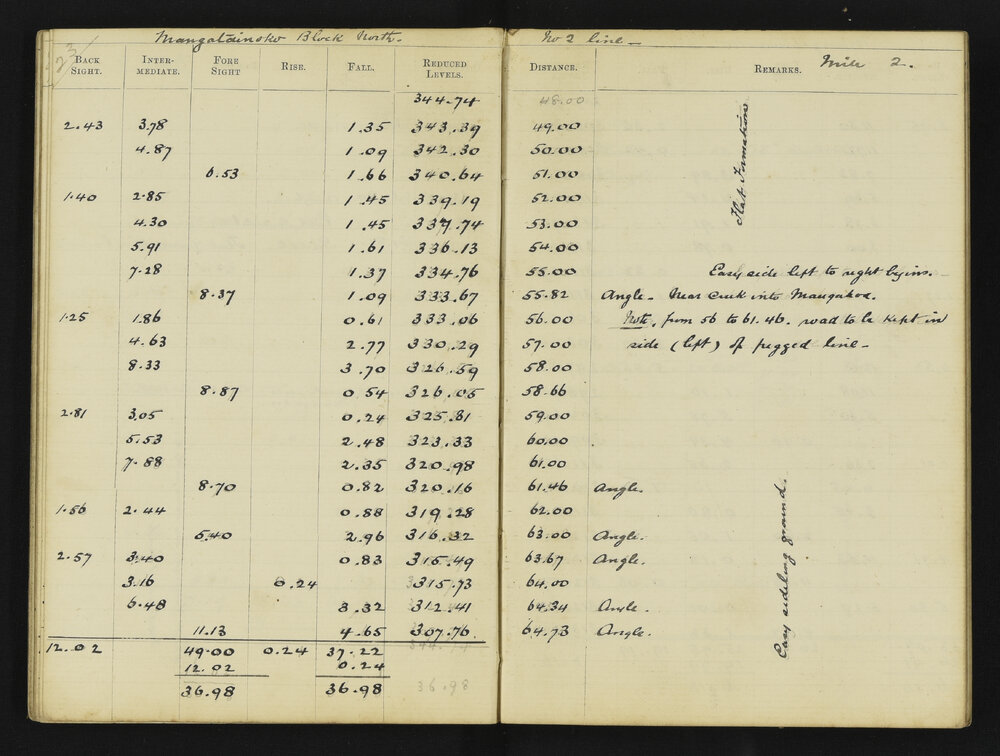 23/
Mangatainoko Block North. No 2 line –
BACK SIGHT. INTER-MEDIATE. FORE SIGHT RISE. FALL. REDUCED LEVELS. DISTANCE. REMARKS. Mile 2.
344.74 48.00
2.43 3.78 1.35 343.39 49.00
4.87 1.09 342.30 50.00
6.53 1.66 340.64 51.00
1.40 2.85 1.45 339.19 52.00
4.30 1.45 337.74 53.00
5.91 1.61 336.13 54.00
7.28 1.37 334.76 55.00 Easy side left to right begins.
8.37 1.09 333.67 55.82 Angle – Near Creek into Mangahoa.
1.25 1.86 0.61 333.06 56.00 Note, from 56 to 61.46. road to be kept in
4.63 2.77 330.29 57.00 side (left) of pegged line –
8.33 3.70 326.59 58.00
8.87 0.54 326.05 58.66
2.81 3.05 0.24 325.81 59.00
5.53 2.48 323.33 60.00
7.88 2.35 320.98 61.00
8.70 0.82 320.16 61.46 Angle.
1.56 2.44 0.88 319.28 62.00
5.40 2.96 316.32 63.00 Angle.
2.57 3.40 0.83 315.49 63.67 Angle.
3.16 0.24 315.73 64.00
6.48 3.32 312.41 64.34 Angle.
11.13 4.65 307.76 64.73 Angle.
12.02 49.00 0.24 37.22 344.74
12.02 0.24
36.98 36.98 36.98
Flat Formation
Easy sideling ground.